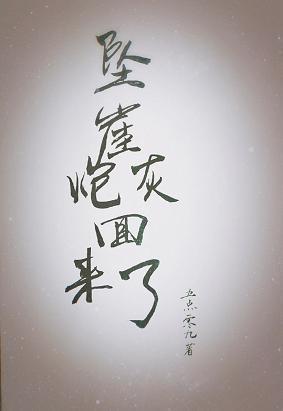 坠崖炮灰回来了
五点零九 著